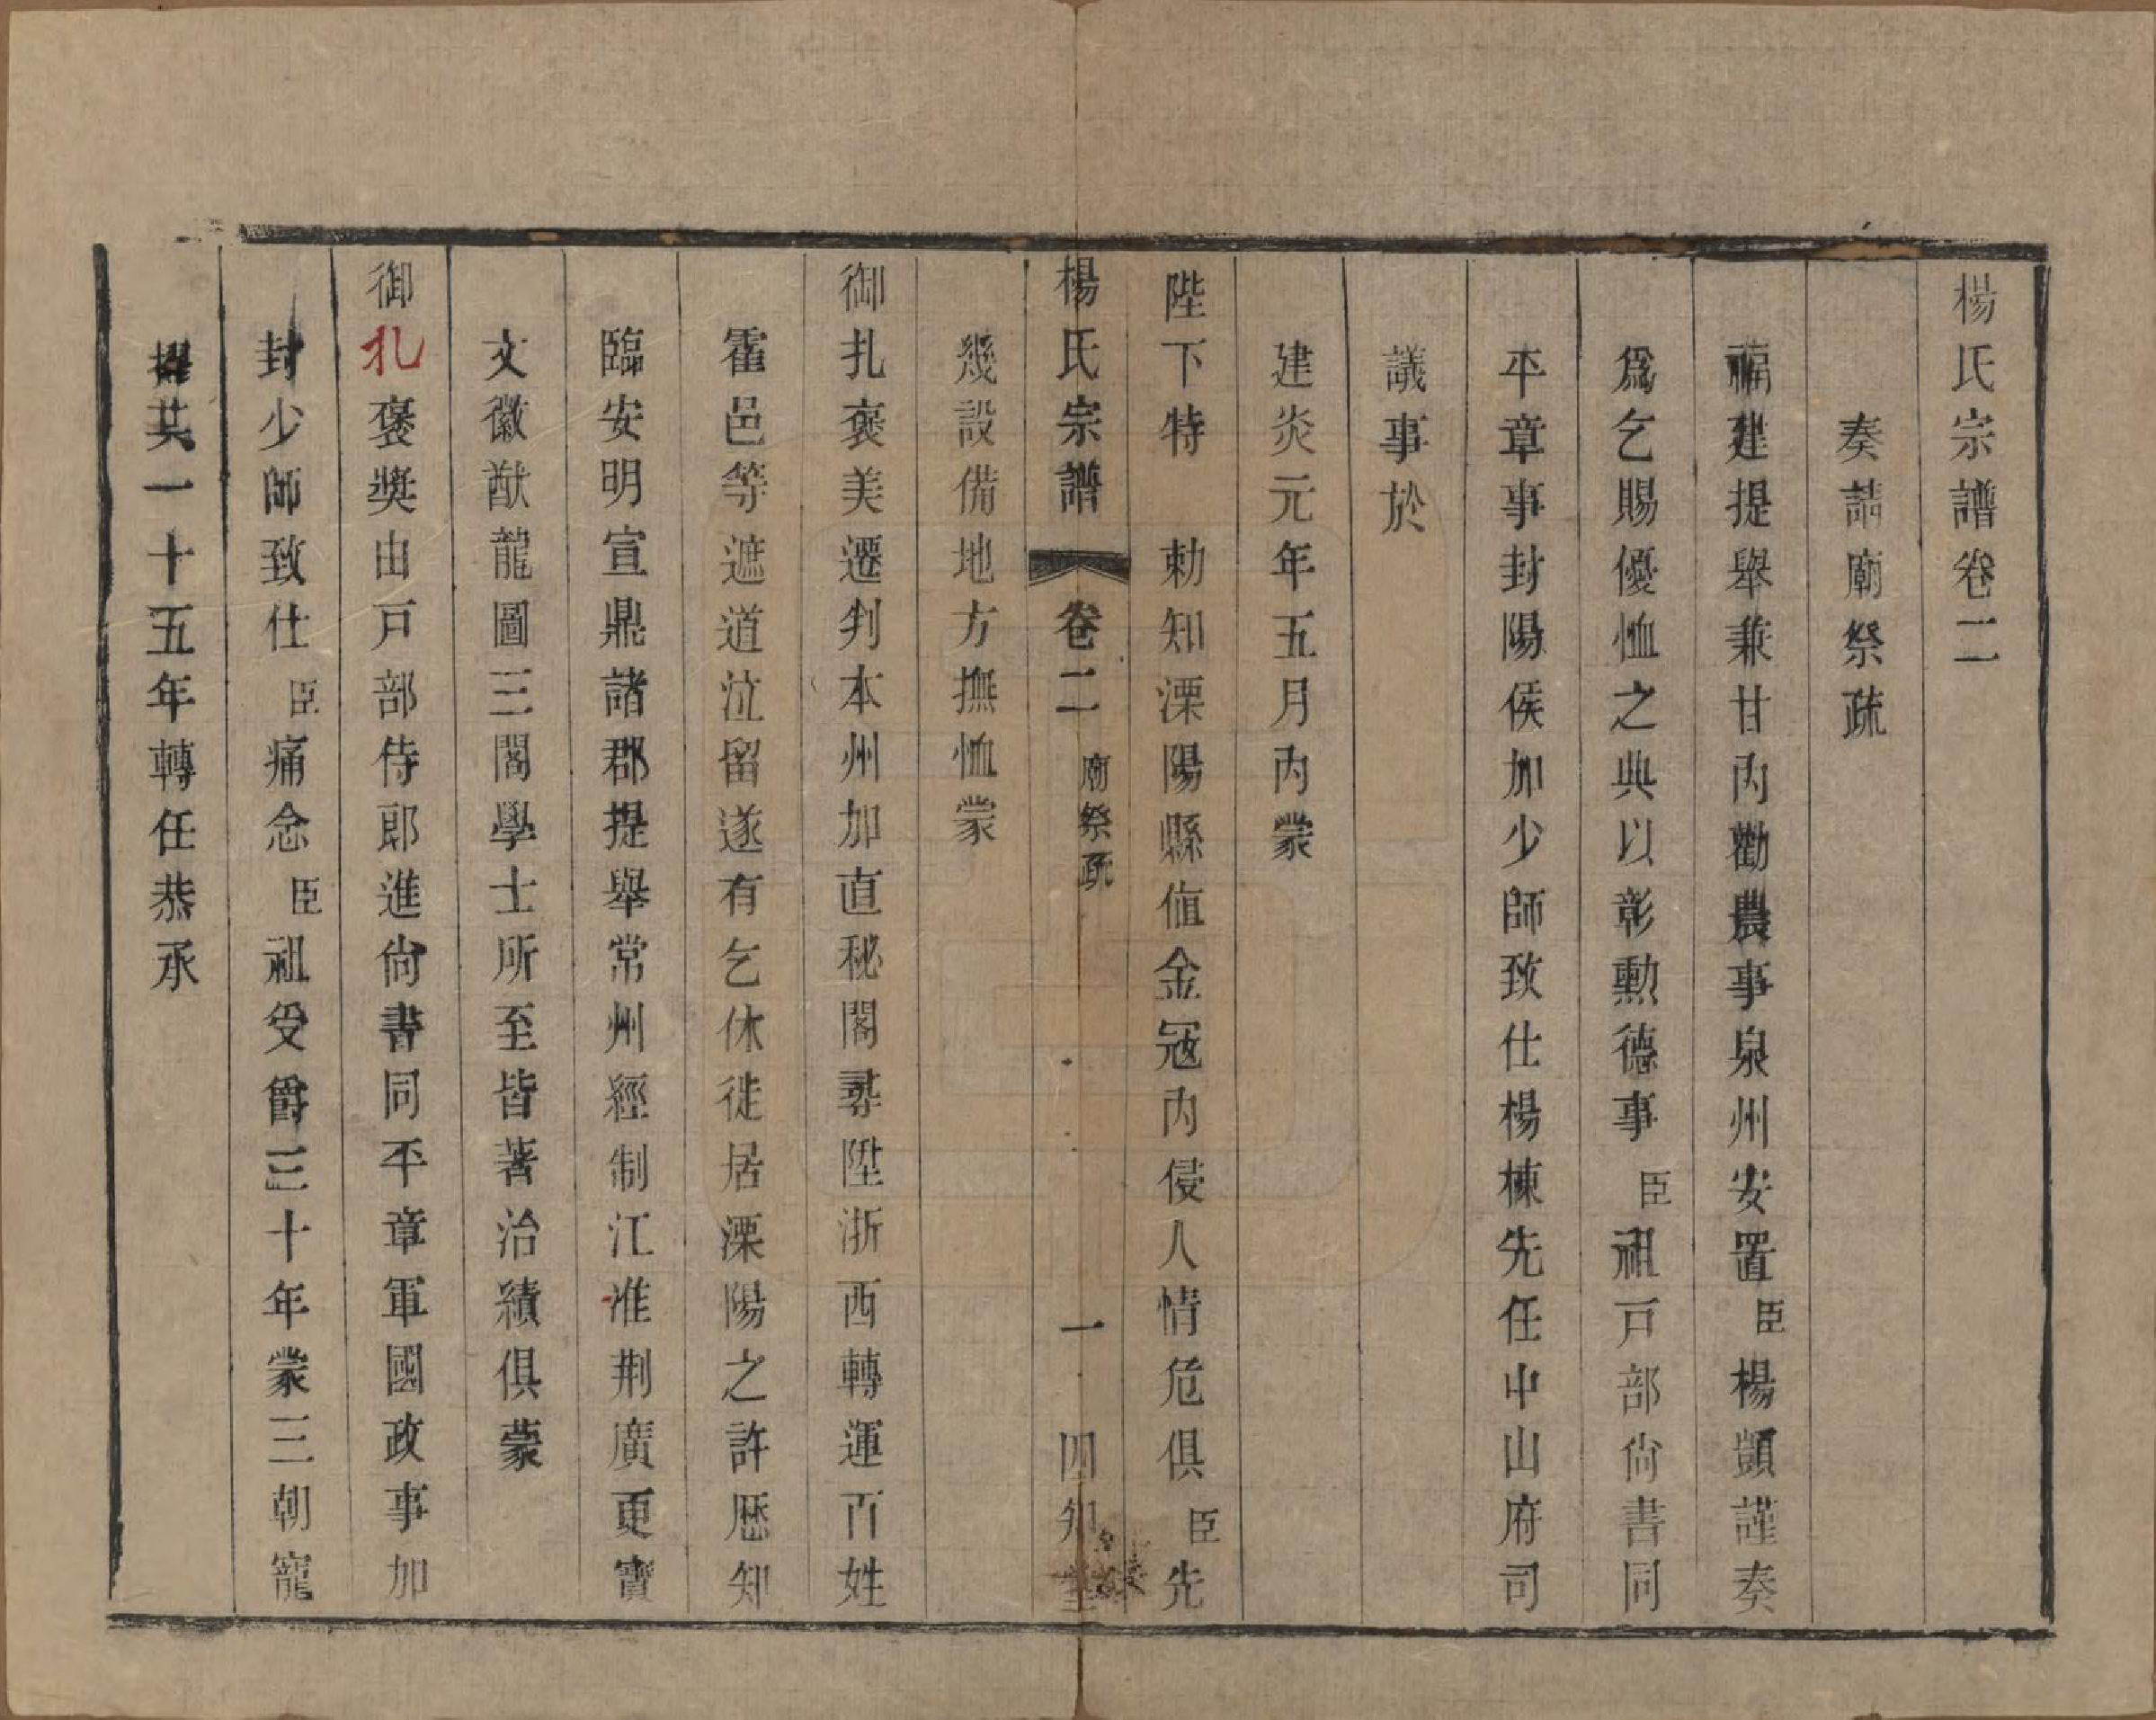 楊氏宗譜卷二
奏請廟祭疏
福建提舉兼甘丙勸農事泉州安置臣楊顗謹奏
爲乞賜優恤之典以彰勳德事臣祖戸部尙書同
平章事封陽侯加少師致仕楊棟先任中山府司
議事於
建炎元年五月內蒙
陛下特勅知溧陽縣值金冦內侵人情危俱臣先
楊氏宗譜 卷二 廟祭疏 一 四知堂
幾設備地方撫恤蒙
御扎褒美遷判本州加直秘閣尋陞浙西轉運百姓
霍邑等遮道泣留遂有乞休徙居溧陽之許歷知
臨安明宣鼎諸郡提舉常州經制江淮荆廣更寶
文徽猷龍圖三閣學士所至皆著治績俱蒙
御札褒奬由戸部侍郎進尙書同平章軍國政事加
封少師致仕臣痛念臣祖受爵三十年蒙三朝寵
擢共一十五年轉任恭承